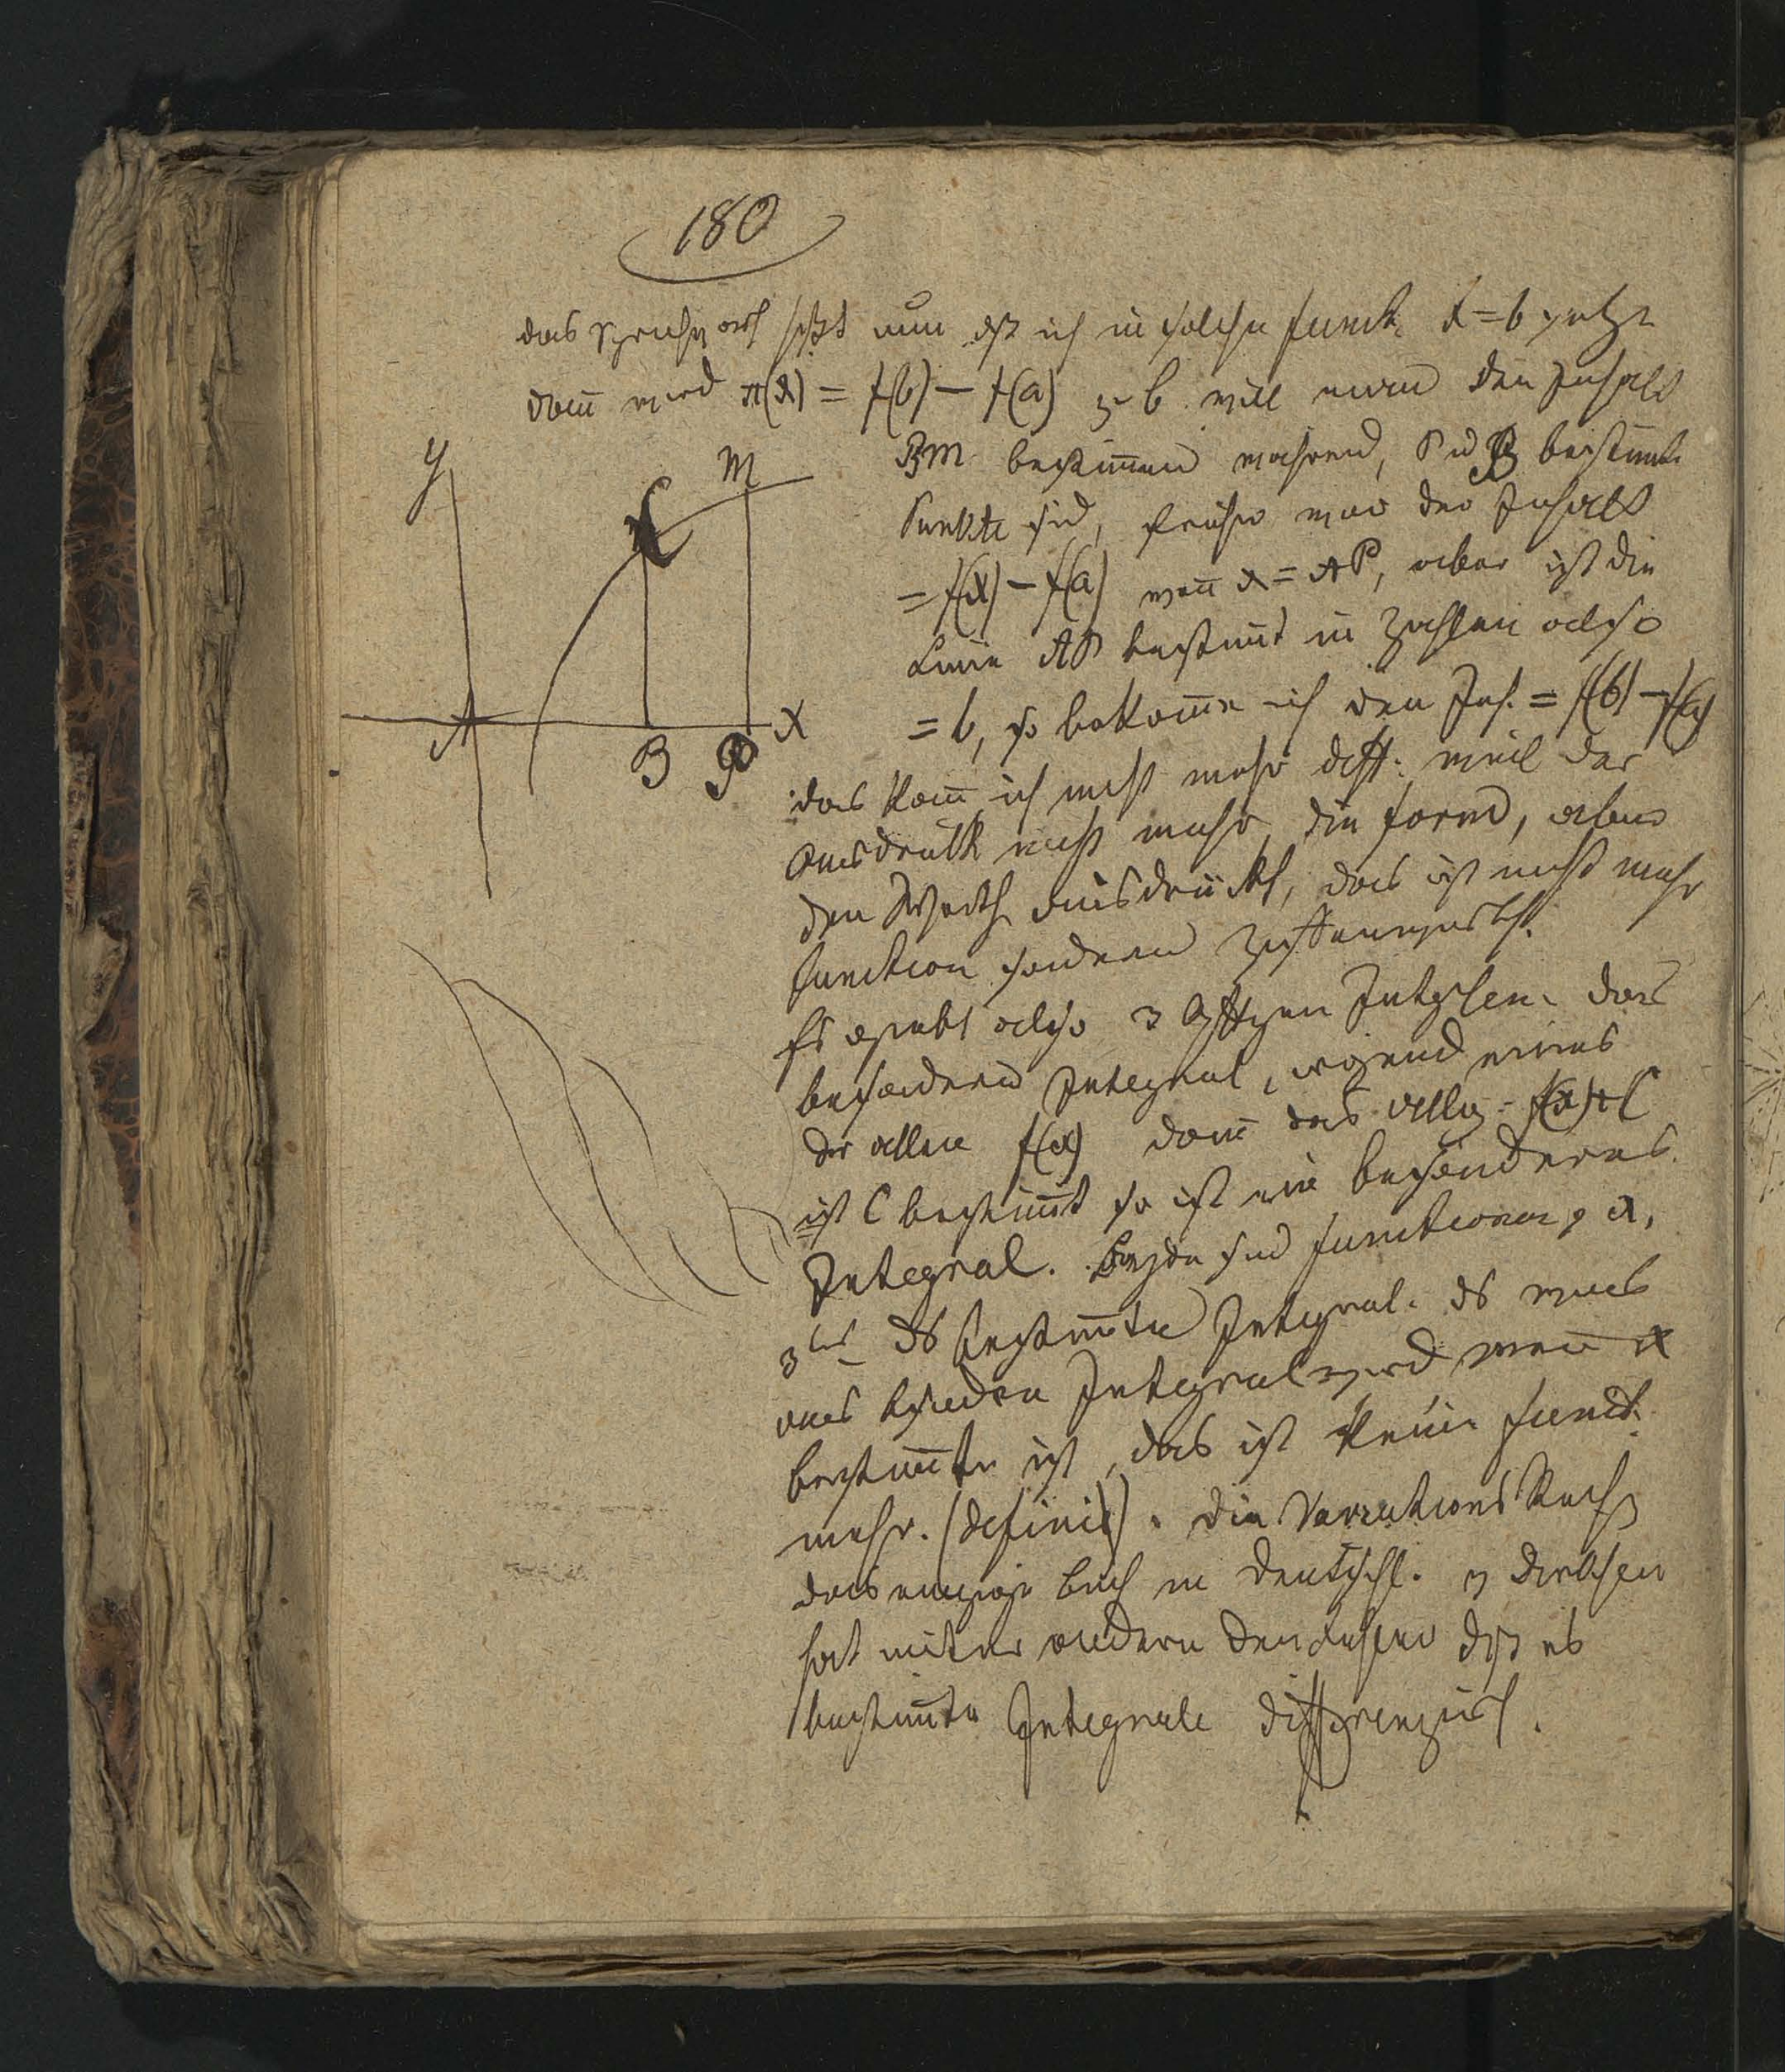 180
das heißt nun ich in solche funct. x=b setze
dann wird π(x) = f(b) – f(a) z. b. will man den Inhalt
Y
M
C
A
B
P
X
BM bestim̄en während, P u B bestimte
Punkte sind, früher war der Inhalt
= f(x) – f(a) wen̄ x = AP, aber ist die
Linie AP bestim̄t in Zahlen also
= b, so bekom̄e ich den Inh. = f(b) – f(a)
das kan̄ ich nicht mehr diff: weil der
Ausdruck nicht mehr die form, aber
den Werth ausdrückt, das ist nicht mehr
function sondern
Es giebt also 3 Integralen. das
besondere Integral, irgend eines
der allen f(x) dann das allg. f(x)+C
ist C bestim̄t so ist ein besonderes
Integral. Beyde sind functionen x,
3tes bestim̄te Integral. was
aus Integral wird wen̄ x
bestim̄t ist, das ist keine funct.
mehr. (definit). die Variations Rech
das einzige buch in deutschl. v Dirksen
hat unter andern den dß es
bestim̄te Integrale differenzirt.